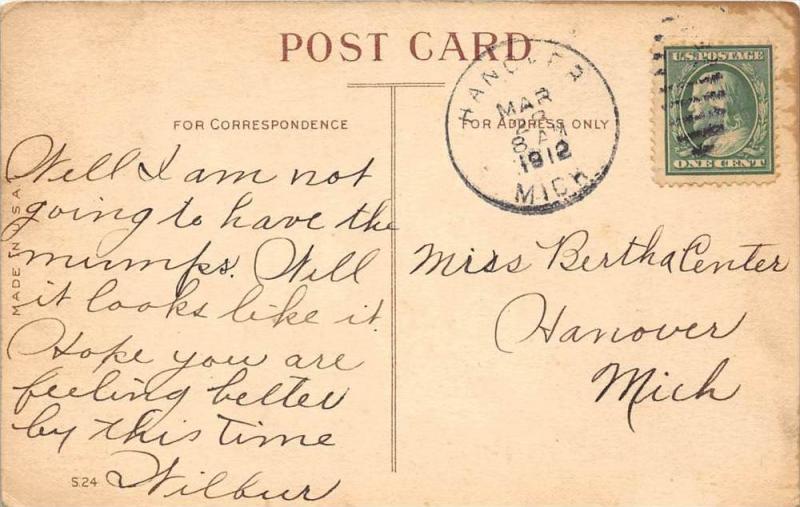 POST CARD
FOR CORRESPONDENCE
FOR ADDRESS ONLY
HANOVER
MAR
8 AM
1912
MICH
U.S. POSTAGE
ONE CENT
MADE IN U.S.A.
Well I am not
going to have the
mumps. Well
it looks like it.
Hope you are
feeling better
by this time
Wilbur
S.24
Miss Bertha Center
Hanover
Mich